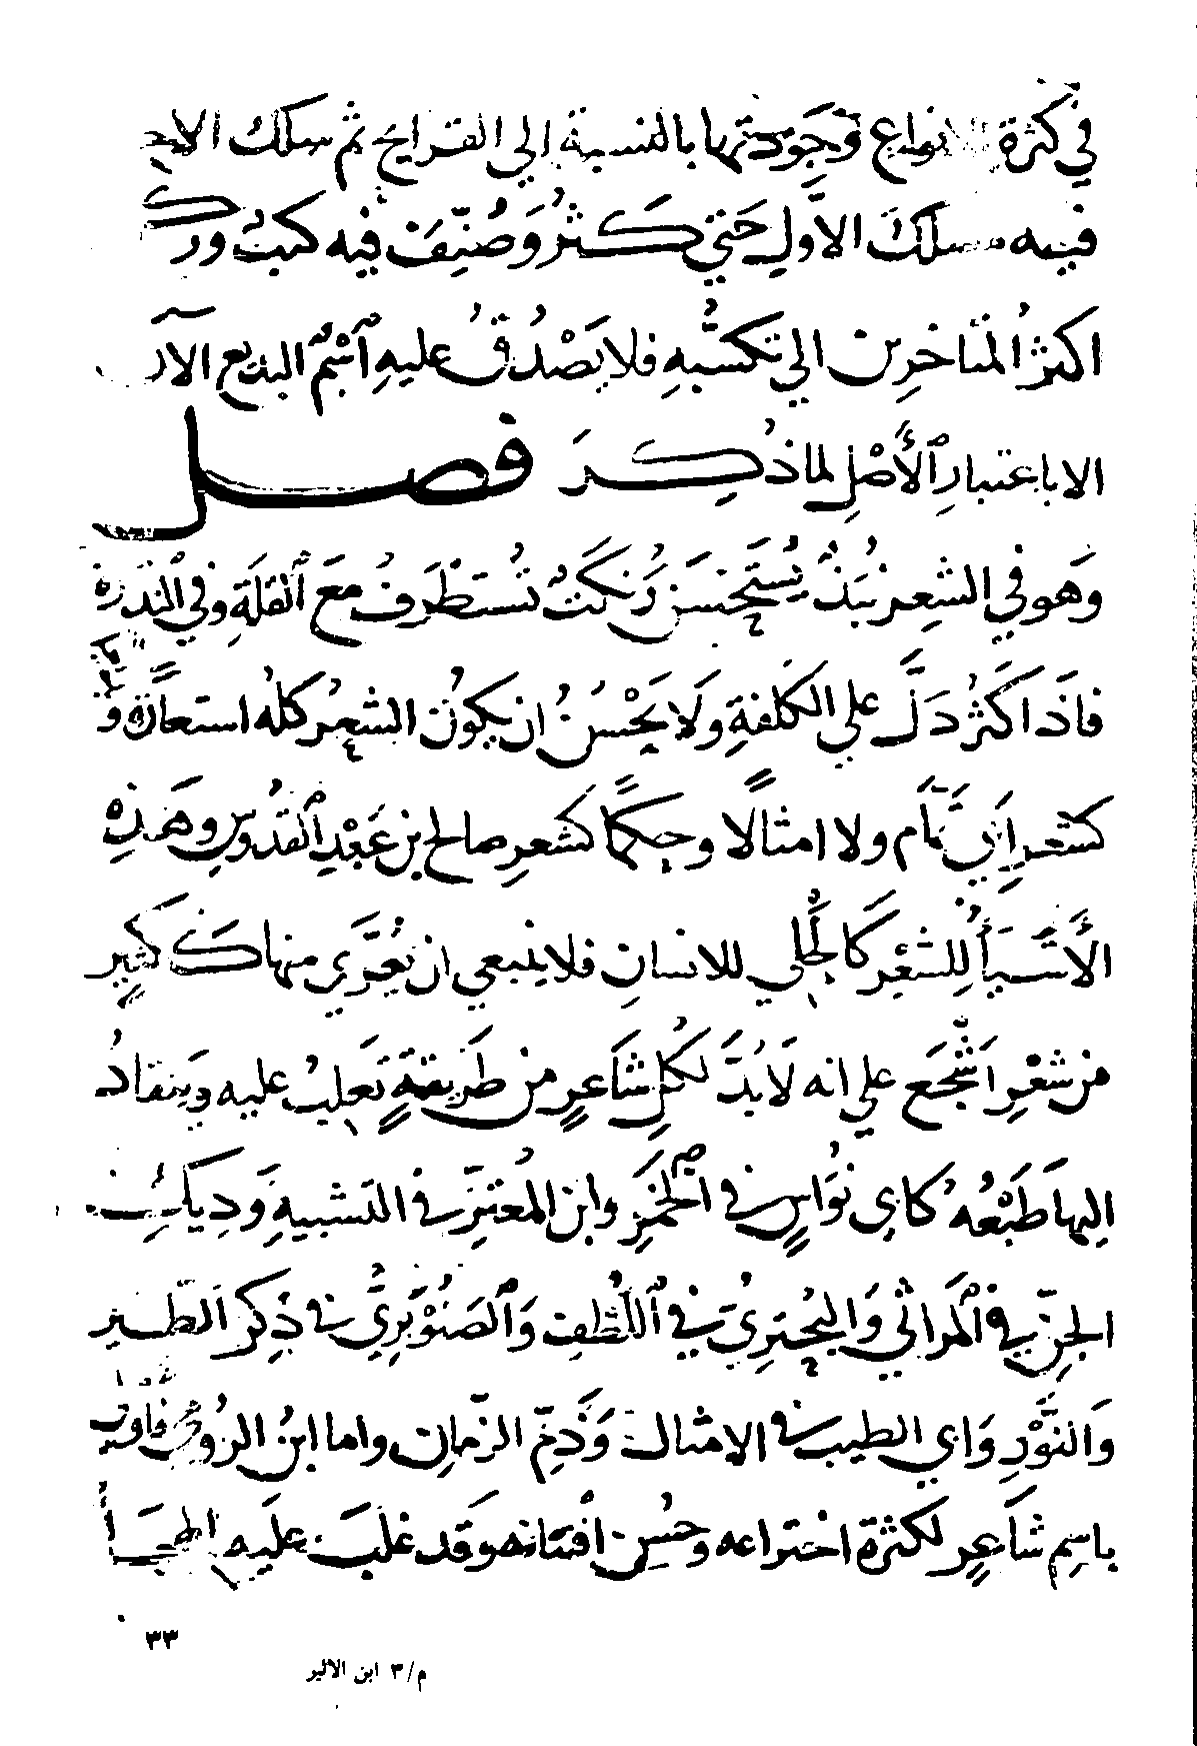 في كثرة الانواع وَجَودتها بالنسبة الي القرايح ثم سلك الاخـ
فيه مسلك الاوَّلِ حَتي كَثرُ وَصُنِّفَ فيه كتبٌ ورد
اكثرُ المتَاخرِين الي تكسُّبهِ فلا يَصْدُقُ عليهِ ٱسْمُ البديع الآن
الا باعتبارِ ٱلأَصْلِ لما ذُكِرَ فصل
وَهو في الشِعر نُبَذٌ يُسْتَحْسَنُ وَنكَتٌ تُستَظْرَفُ مَعَ ٱلقلَةِ وفي النَّدْرَة
فاذَا كَثُرَ دَلَّ علي الكلفةِ ولَا يَحْسُنُ ان يكونُ الشعرُ كلهُ استعارَةً و
كشعرِ اَبي تَمَّام ولا امثالًا وحِكمًا كشعرِ صالح بن عَبْدِ ٱلقُدُّوسِ وهَذِهِ
الأَشْيَأُ لِلشِعْرِ كَالحُلِي للانسانِ فلا ينبغي ان يُعَرَّي منها كَكثيرٍ
من شعْرِ اَشْجَعَ علي انه لَابُدَّ لكُلِ شَاعرٍ من طَريقةٍ تَغلِبُ عليه وَينقادُ
اليها طَبْعُهُ كابي نُوَاسٍ في ٱلخَمْرِ وابن المُعْتَزِّ في التشبيهِ وَدِيك
الجنِّ في ٱلمَراثي وَالبُحْتريُّ في ٱللُّطْفِ وَٱلصَنَوْبَرِيُّ في ذِكر الطَّير
وَالنَّوْرِ وَابي الطيب في الامثال وَذَمِّ الزّمان واما ابنُ الرُّومي فاولي
باسمِ شَاعرٍ لكثرة اختراعه وحُسن افتنانه وقد غلبَ عليَه الهجَأُ
٣٣
م/٣ ابن الاثير